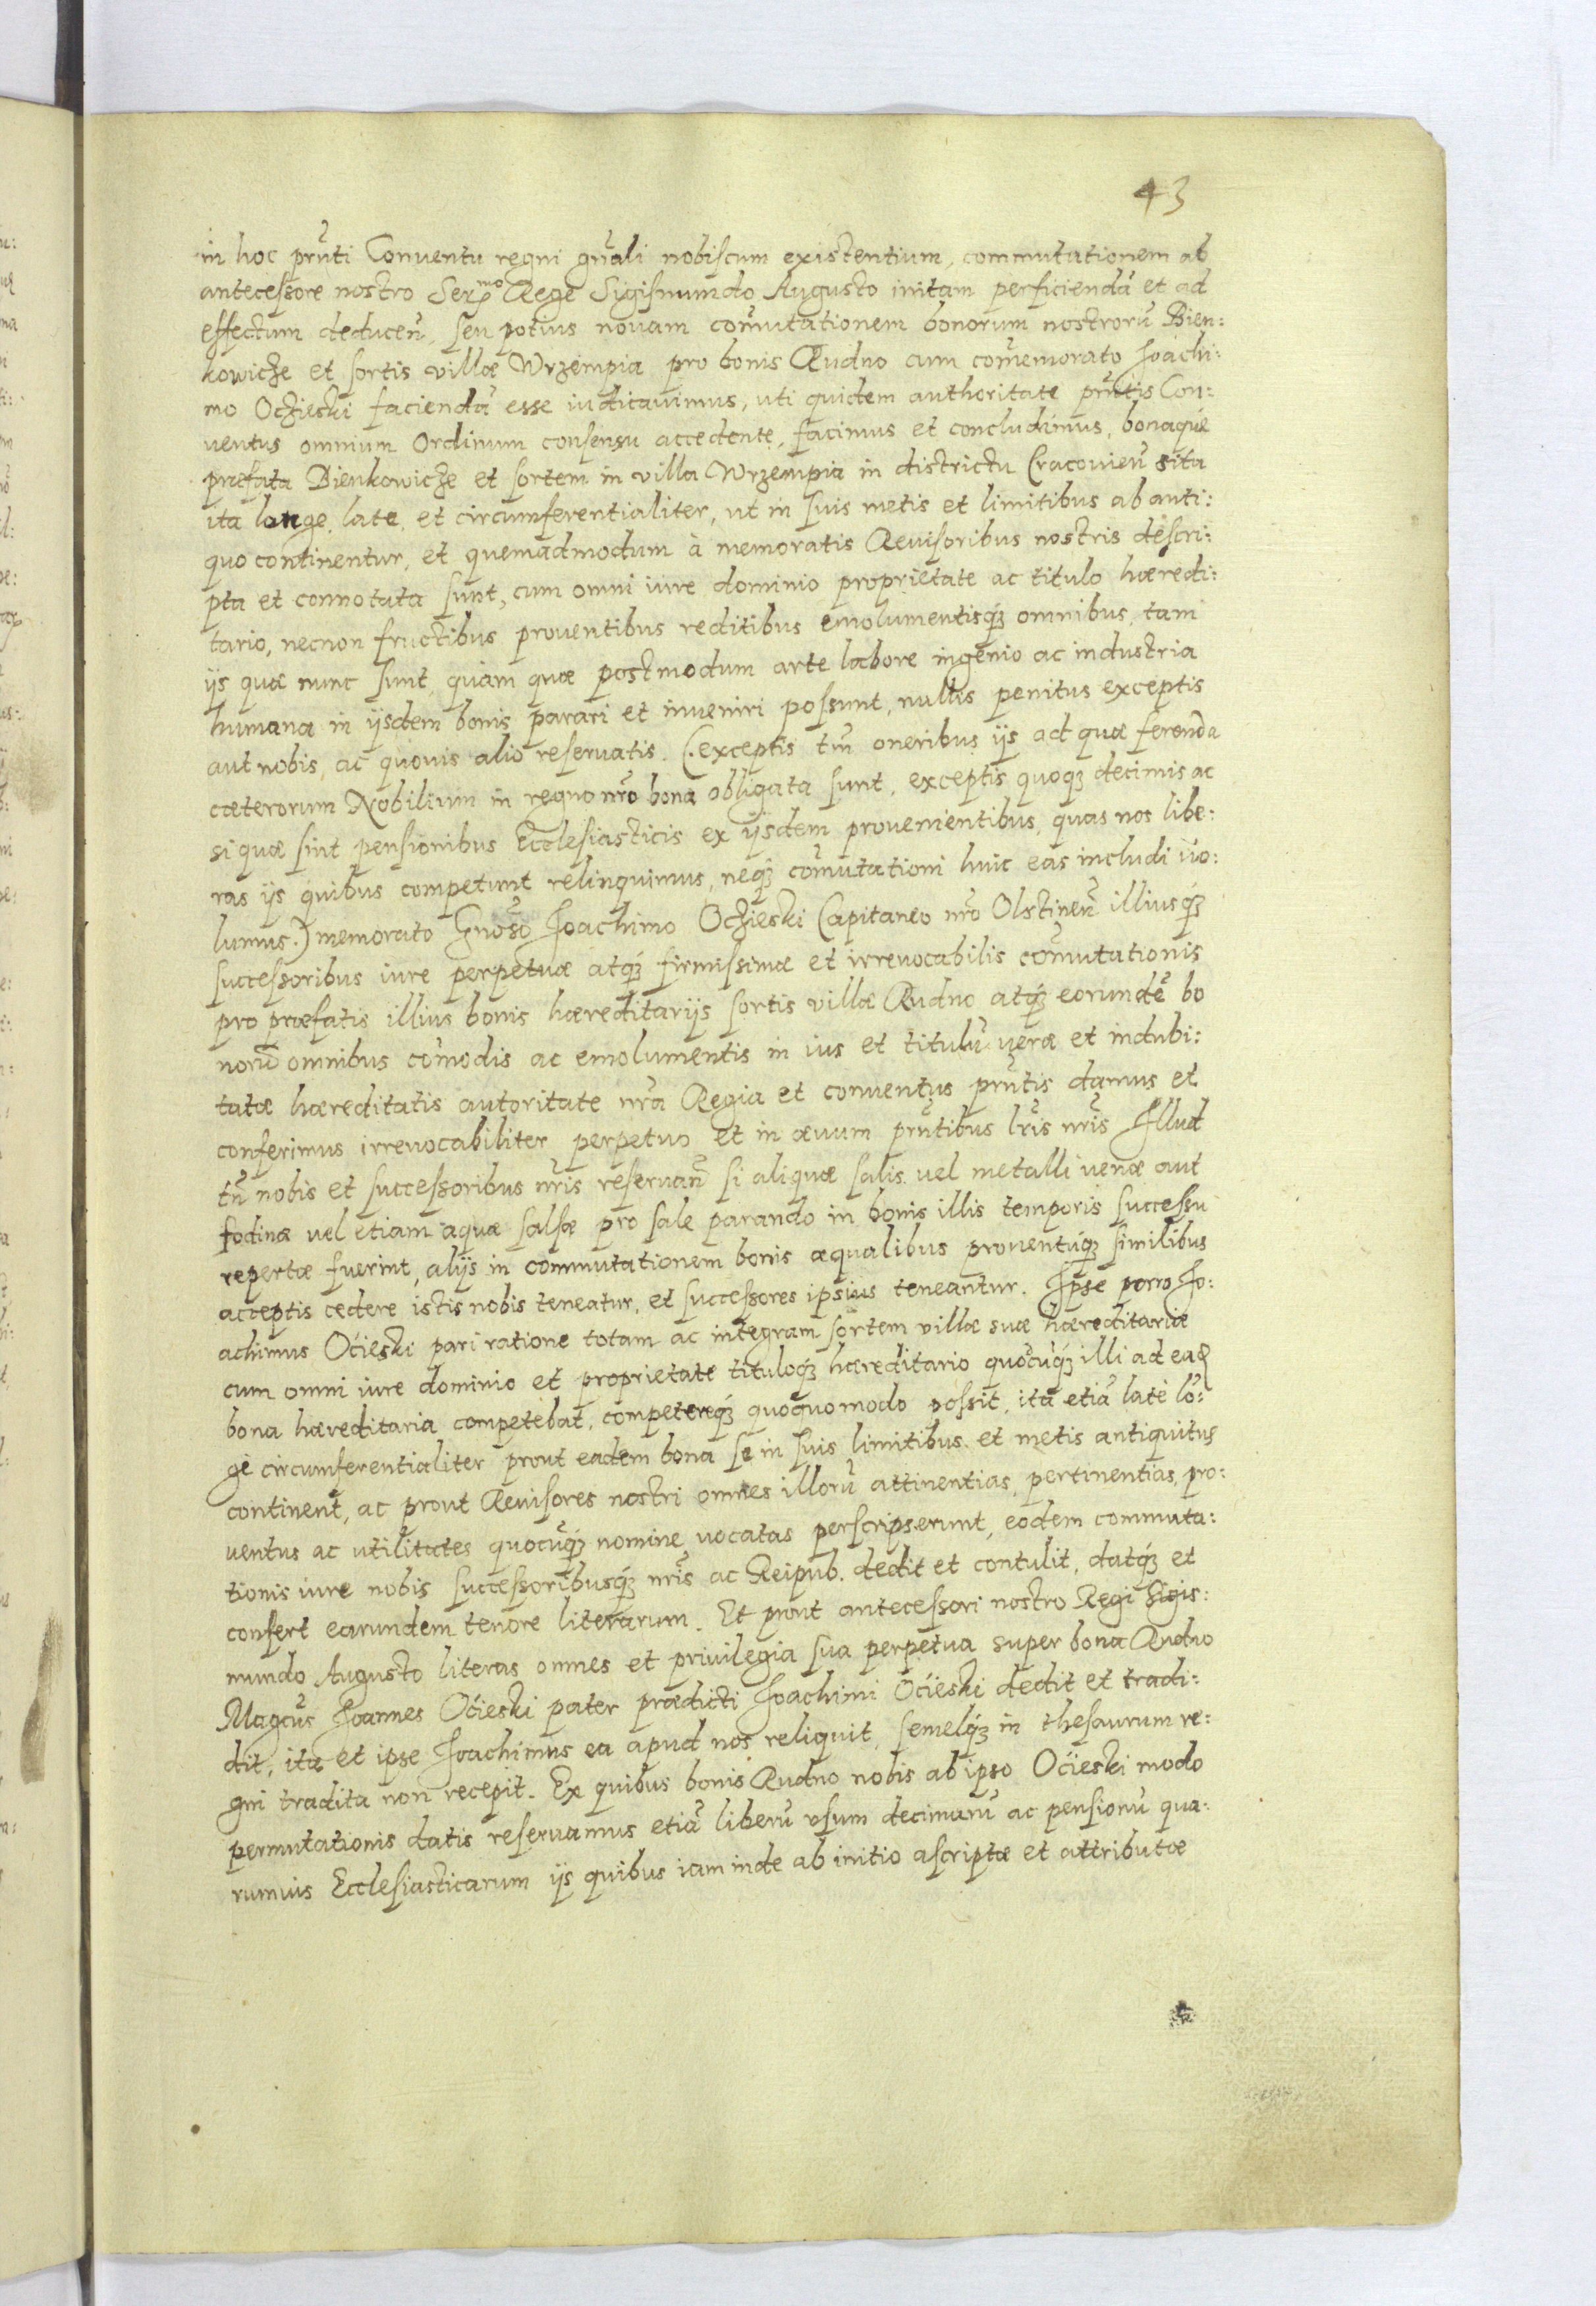 43
in hoc prñti Conventu regni gñali nobiscum existentium, commutationem ab
antecessore nostro Ser^mo Rege Sigismundo Augusto initam perficiendã et ad
effectum deducen̄, seu potius novam com̃utationem bonorum nostrorũ Bien:
kowicze et sortis villæ Wrzempia pro bonis Rudno cum com̃emorato Joachi:
mo Oczieski faciendã esse iudicavimus, uti quidem authoritate prñtis Con:
ventus omnium Ordinum consensu accedente, facimus et concludimus, bonaque
præfata Bienkowicze et sortem in villa Wrzempia in districtu Cracovien̄ sita
ita longe, late, et circumferentialiter, ut in suis metis et limitibus ab anti:
quo continentur, et quemadmodum à memoratis Revisoribus nostris descri:
pta et connotata sunt, cum omni iure dominio proprietate ac titulo hæredi:
tario, necnon fructibus proventibus reditibus emolumentisq́ꝫ omnibus, tam
ijs quæ nunc sunt, quàm quæ postmodum arte labore ingenio ac industria
humana in ijsdem bonis parari et inveniri possunt, nullis penitus exceptis
aut nobis, ac quovis alio reservatis. (.exceptis tm̃ oneribus ijs ad quæ ferenda
cæterorum Nobilium in regno nr̃o bona obligata sunt, exceptis quoqꝫ decimis ac
si quæ sint pensionibus Ecclesiasticis ex ijsdem provenientibus, quas nos libe:
ras ijs quibus competunt relinquimus, neqꝫ com̃utationi huic eas includi vo:
lumus.) memorato Gnoso Joachimo Oczieski Capitaneo nr̃o Olstinen̄ illiusq́ꝫ
successoribus iure perpetuæ atqꝫ́ firmissimæ et irrevocabilis com̃utationis
pro præfatis illius bonis hæreditarijs sortis villæ Rudno atqꝫ́ eorundẽ bo
norũ omnibus com̃odis ac emolumentis in ius et titulũ veræ et indubi:
tatæ hæreditatis autoritate nr̃a Regia et conventus prñtis damus et
conferimus irrevocabiliter perpetuo et in ævum prñtibus lr̃is nr̃is Illud
tñ nobis et successoribus nr̃is reservan̄ si aliquæ salis vel metalli venæ aut
fodinæ vel etiam aquæ salsæ pro sale parando in bonis illis temporis successu
repertæ fuerint, alijs in commutationem bonis æqualibus proventúqꝫ similibus
acceptis cedere istis nobis teneatur, et successores ipsius teneantur. Ipse porro Jo:
achimus Ocieski pari ratione totam ac integram sortem villæ suæ hæreditariæ
cum omni iure dominio et proprietate tituloqꝫ́ hæreditario quocũqꝫ́ illi ad eaꝗ
bona hæreditaria competebat, competereqꝫ́ quoquomodo possit, ita etiã latè lõ:
gè circumferentialiter prout eadem bona se in suis limitibus et metis antiquitus
continent, ac prout Revisores nostri omnes illorũ attinentias, pertinentias, pro:
ventus ac utilitates quocũqꝫ́ nomine vocatas perscripserunt, eodem commuta:
tionis iure nobis successoribusqꝫ́ nr̃is ac Reipub. dedit et contulit, datqꝫ́ et
confert earundem tenore literarum. Et prout antecessori nostro Regi Sigis:
mundo Augusto literas omnes et privilegia sua perpetua super bona Rudno
Magcũs Joannes Ocieski pater prædicti Joachimi Ocieski dedit et tradi:
dit, ita et ipse Joachimus ea apud nos reliquit, semelqꝫ́ in thesaurum re:
gni tradita non recepit. Ex quibus bonis Rudno nobis ab ipso Ocieski modo
permutationis datis reservamus etiã liberũ usum decimarũ ac pensionũ qua:
rumvis Ecclesiasticarum ijs quibus iam inde ab initio ascriptæ et attributæ